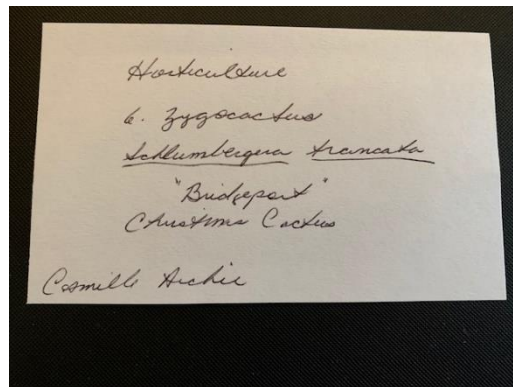 Horticulture
6. Zygocactus
Schlumbergera truncata
"Bridgeport"
Christmas Cactus
Camille Archie